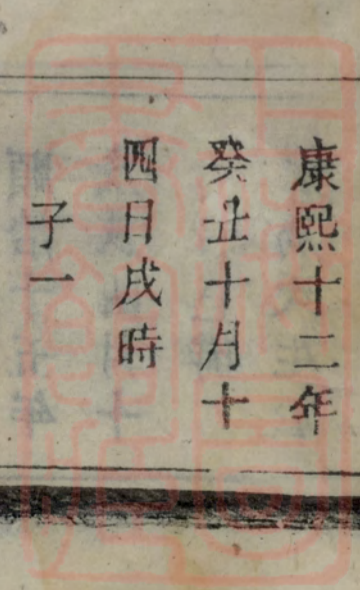 康熙十二年
癸丑十月十
四日戌時
子一